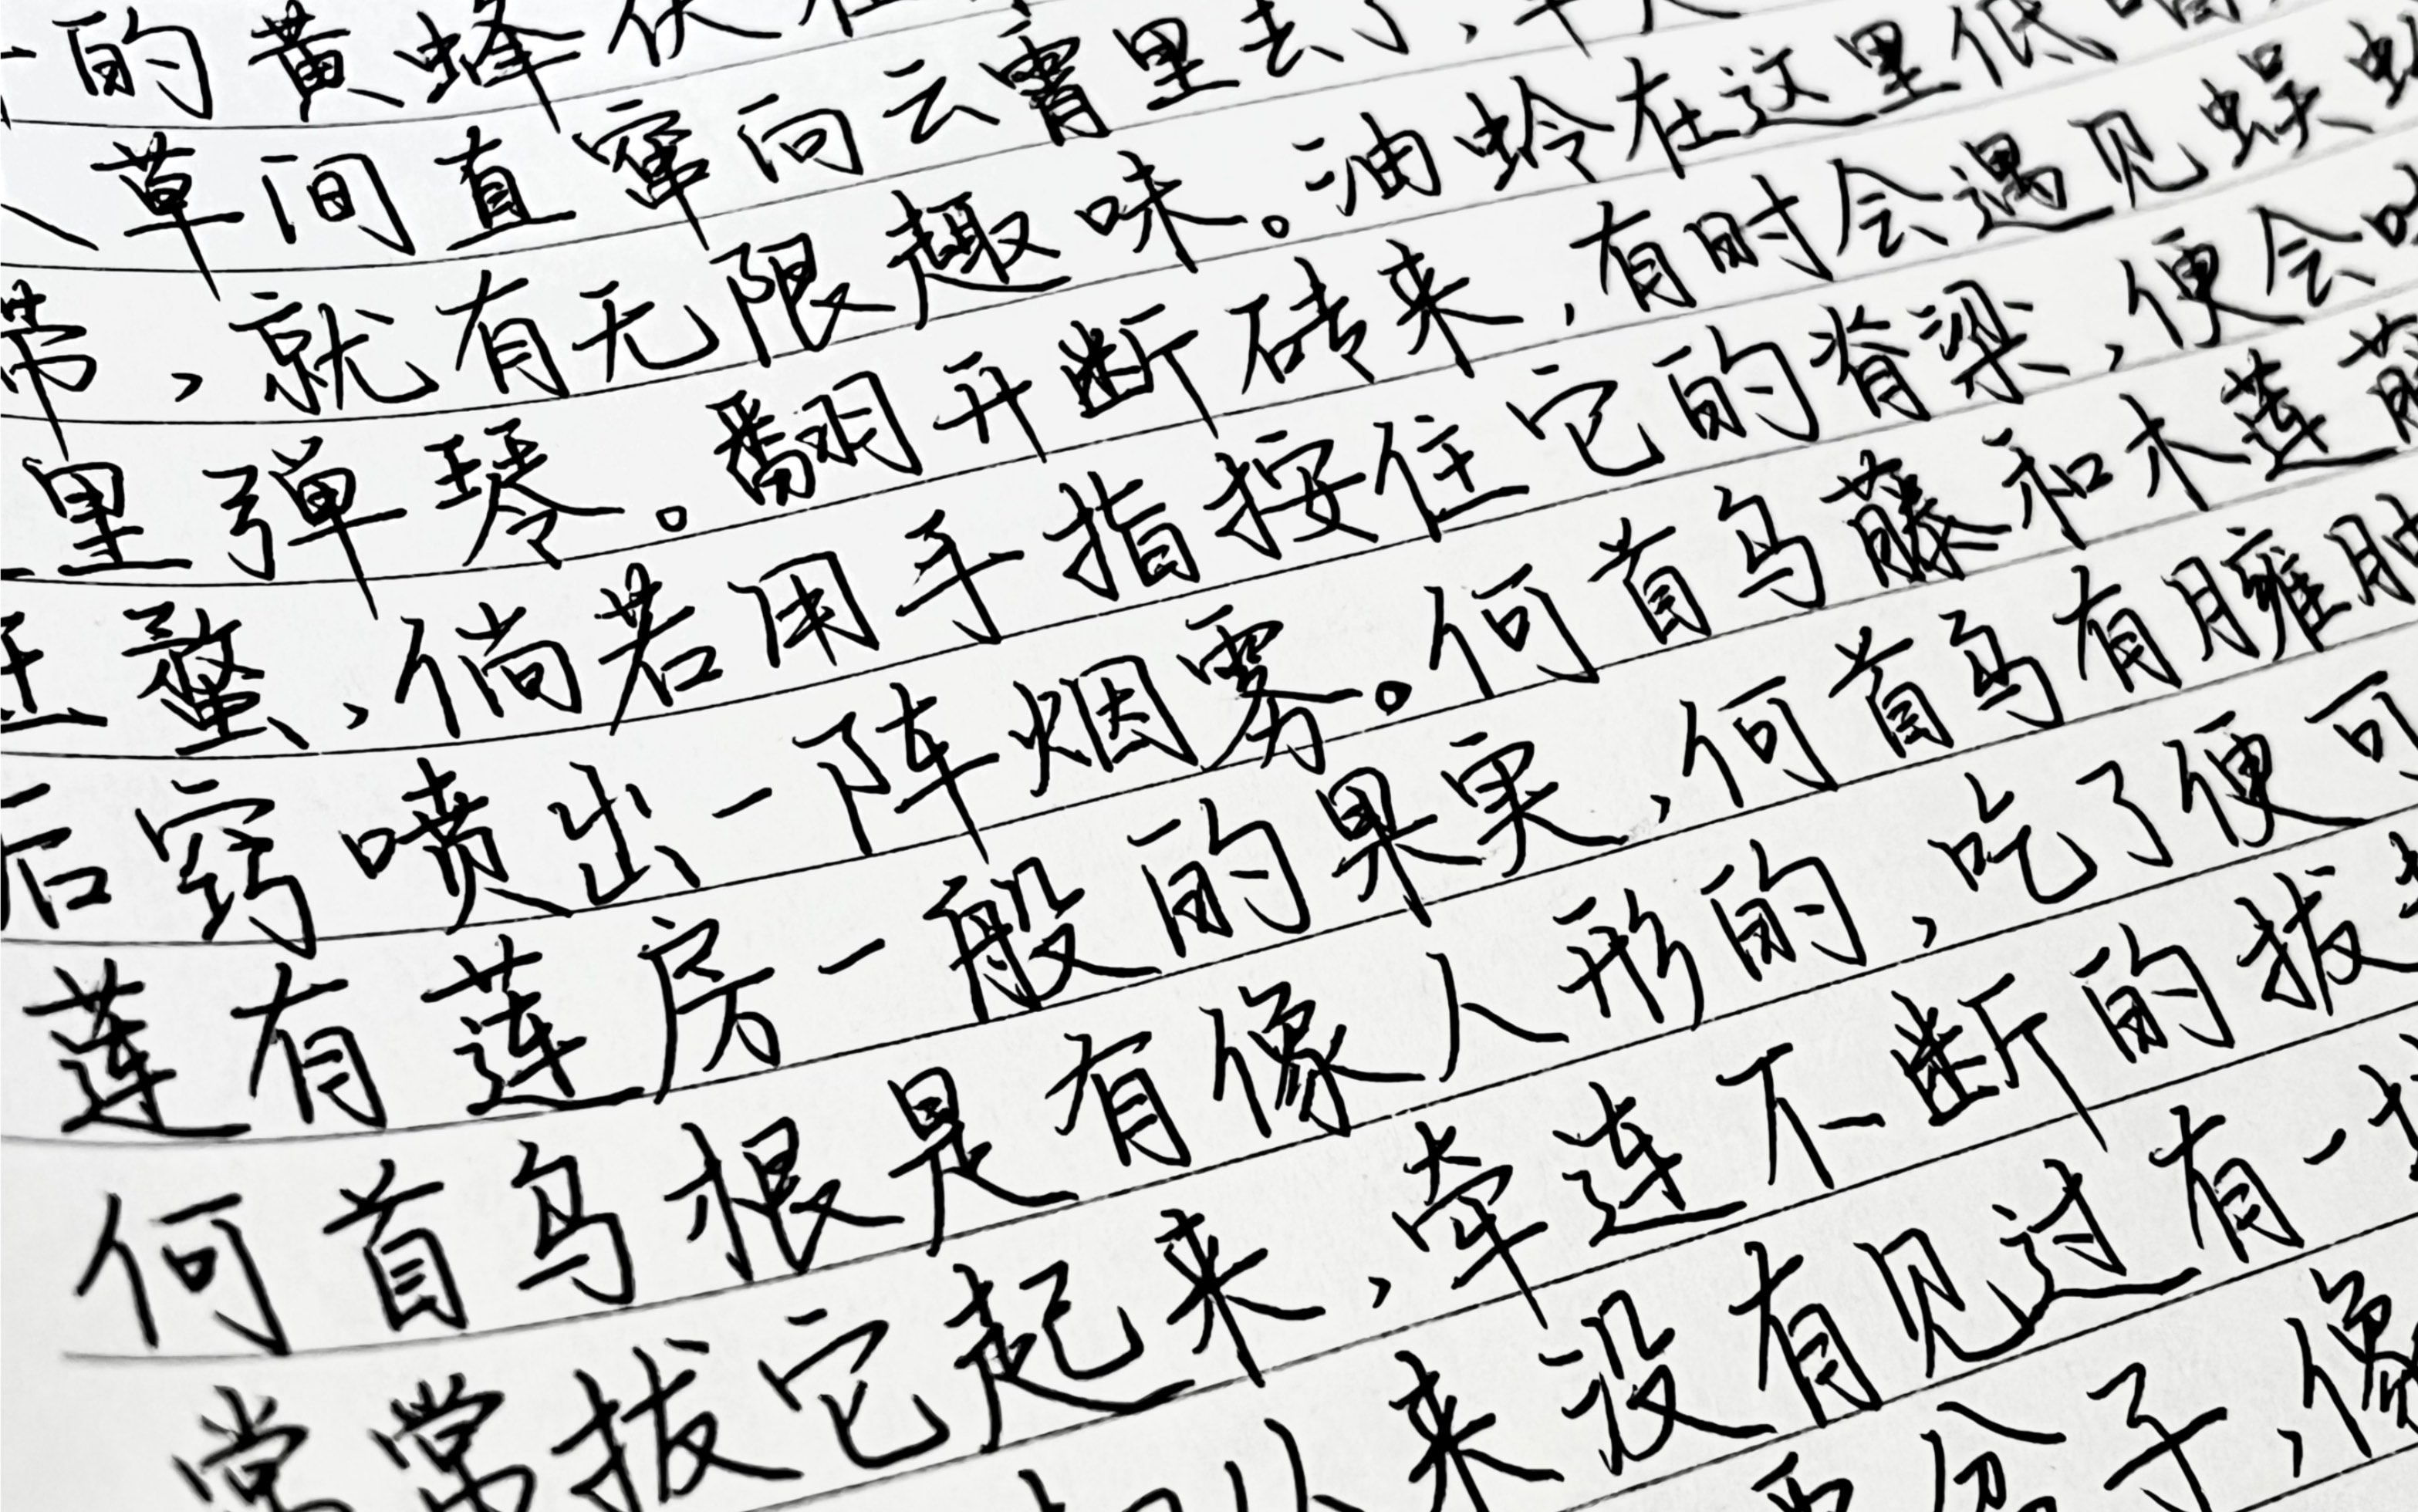 的黄蜂伏在
草间直窜向云霄里去了,
带,就有无限趣味。油蛉在这里低唱
里弹琴。翻开断砖来,有时会遇见蜈蚣
斑蝥,倘若用手指按住它的脊梁,便会
后窍喷出一阵烟雾。何首乌藤和木莲藤
莲有莲房一般的果实,何首乌有臃肿
何首乌根是有像人形的,吃了便可
常常拔它起来,牵连不断的拔
来没有见过有一
子,像